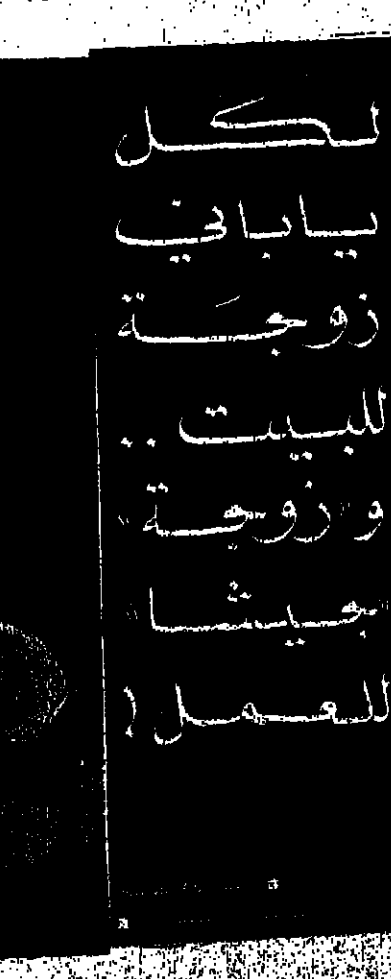 لكل
ياباني
زوجة
للبيت ..
و«زوجة»
«جيشا»
للعمل (